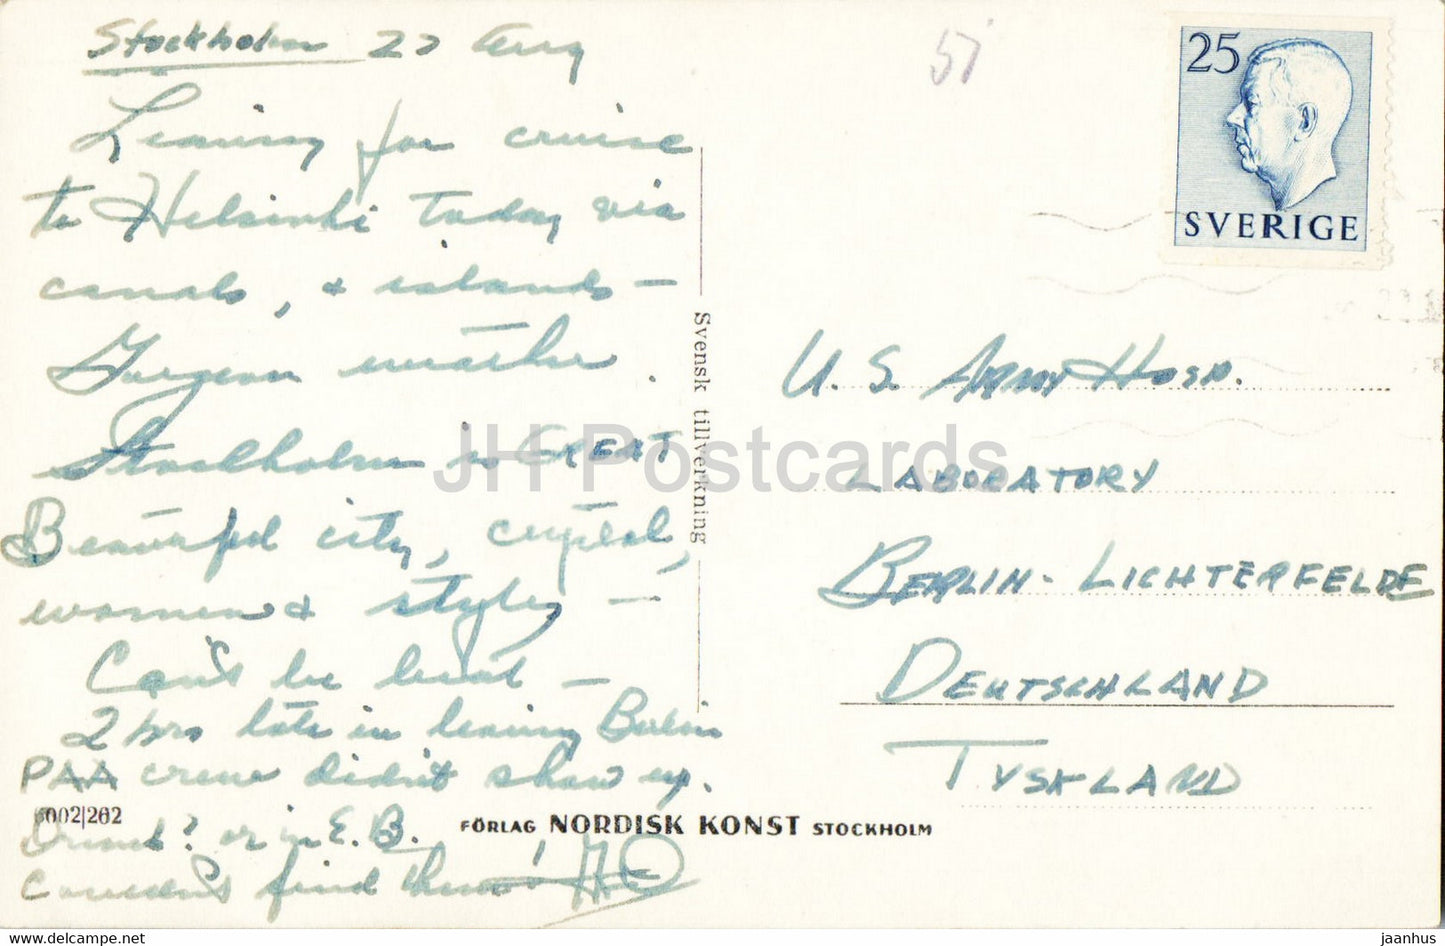 Stockholm 27 Aug
Leaving for cruise
to Helsinki today via
canals, & islands —
Gorgeous weather.
Stockholm is GREAT
Beautiful city, crystal,
women & styles —
Can't be beat —
2 hrs late in leaving Berlin
PAA crew didn't show up.
Drunk? or in E.B.
Couldn't find them!
6002/262
FÖRLAG NORDISK KONST STOCKHOLM
Svensk tillverkning
51
25
SVERIGE
U.S. ARMY HOSP.
LABORATORY
BERLIN-LICHTERFELDE
DEUTSCHLAND
TYSKLAND
JH Postcards
www.delcampe.net
jaanhus